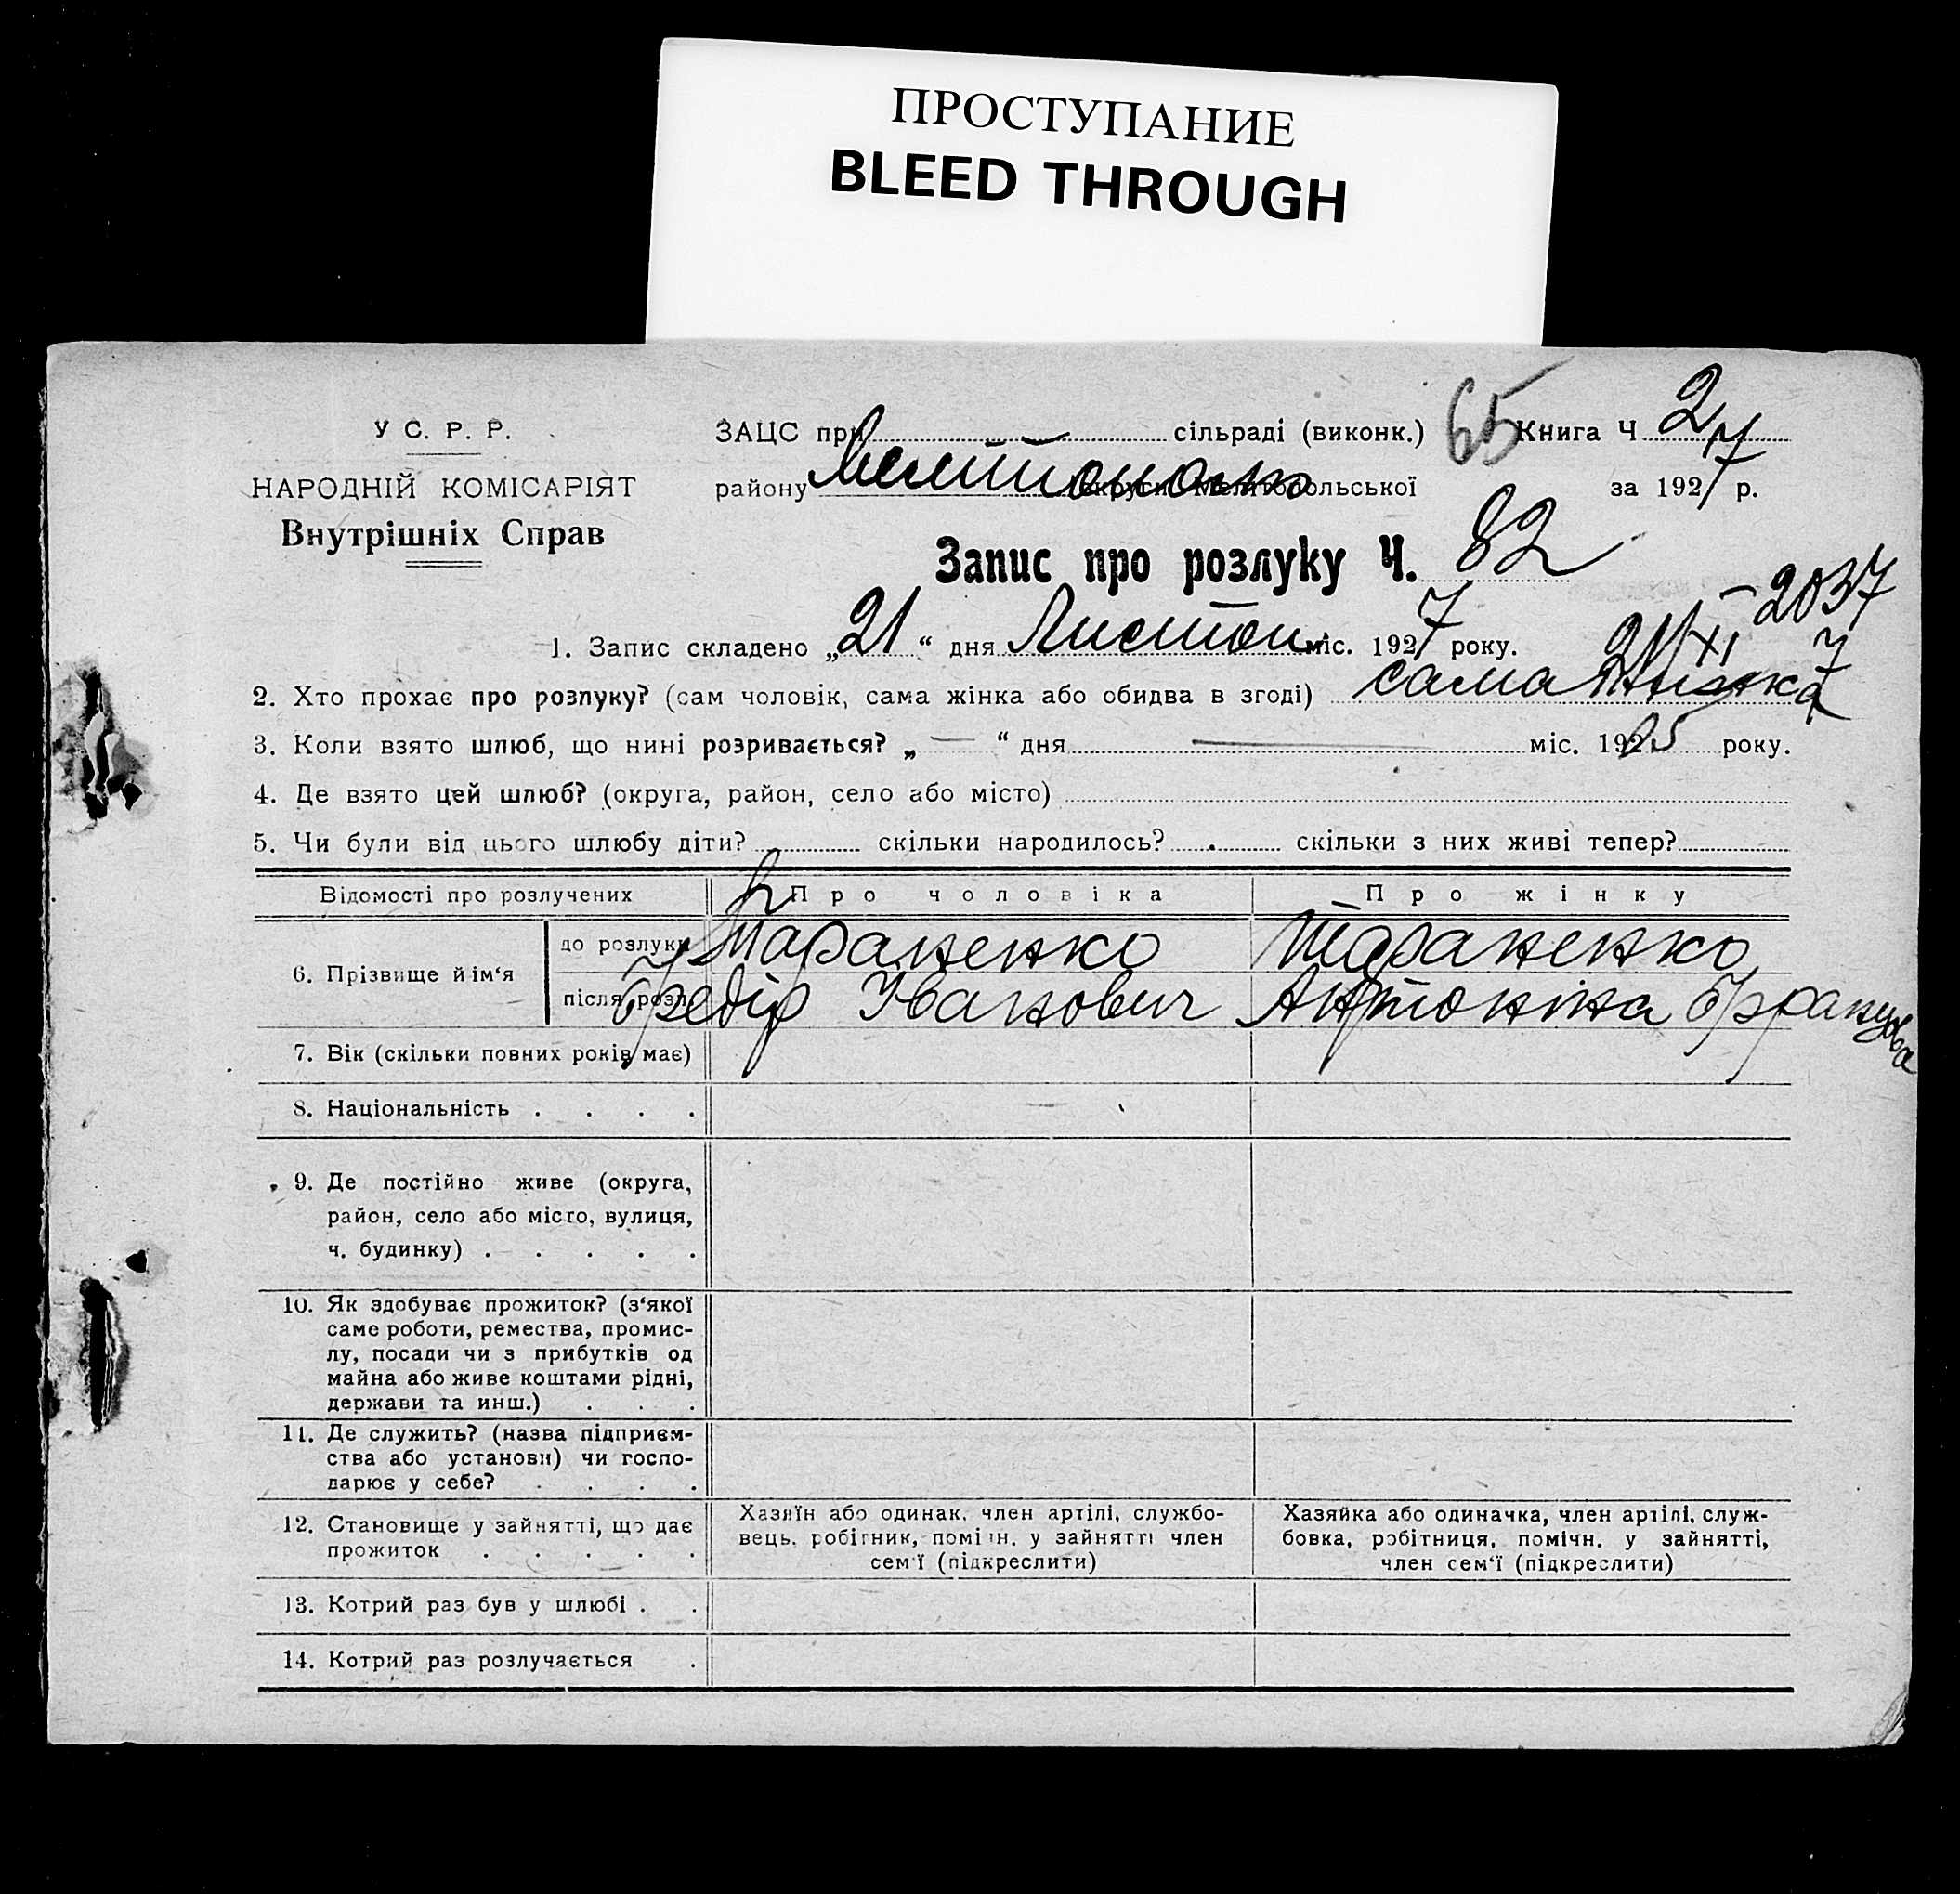 ПРОСТУПАНИЕ
BLEED THROUGH
У С. Р. Р.
НАРОДНІЙ КОМІСАРІЯТ
Внутрішніх Справ
ЗАЦС при сільраді (виконк.) 65 Книга Ч 2
району округи Мелітопольської за 1927 р.
Запис про розлуку Ч. 82
2037
21/XI 7
1. Запис складено „21“ дня Листоп міс. 1927 року.
2. Хто прохає про розлуку? (сам чоловік, сама жінка або обидва в згоді) сама жінка
3. Коли взято шлюб, що нині розривається? „—“ дня — міс. 192 5 року.
4. Де взято цей шлюб? (округа, район, село або місто)
5. Чи були від цього шлюбу діти? скільки народилось? скільки з них живі тепер?
Відомості про розлучених Про чоловіка Про жінку
6. Прізвище й ім‘я до розлуки Тараненко Тараненко
після розл. Федір Іванович Антоніна
7. Вік (скільки повних років має)
8. Національність . . . .
9. Де постійно живе (округа,
район, село або місто, вулиця,
ч. будинку) . . . . .
10. Як здобуває прожиток? (з‘якої
саме роботи, ремества, промис-
лу, посади чи з прибутків од
майна або живе коштами рідні,
держави та инш.) . . .
11. Де служить? (назва підприєм-
ства або установи) чи госпо-
дарює у себе? . . . .
12. Становище у зайнятті, що дає
прожиток . . . . .
Хазяїн або одинак, член артілі, службо-
вець, робітник, помічн. у зайнятті член
сем‘ї (підкреслити)
Хазяйка або одиначка, член артілі, служ-
бовка, робітниця, помічн. у зайнятті,
член сем‘ї (підкреслити)
13. Котрий раз був у шлюбі . .
14. Котрий раз розлучається .